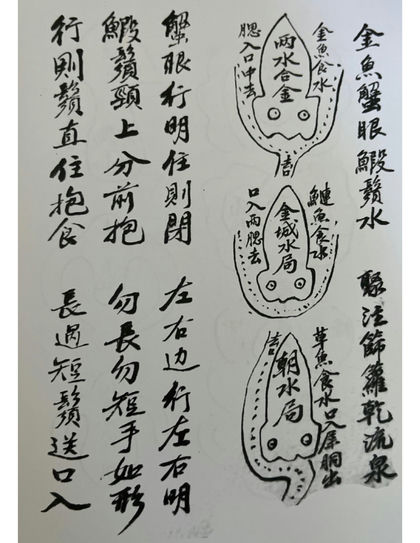 金魚蟹眼鰕鬚水 聚注篩籮乾流泉
金魚食水
兩水合金
腮入口冲去
吉
鰱魚食水
金城水局
口入兩腮去
草魚食水口入屎胴出
朝水局
吉
蟹眼行明住則閉 左右边行左右明
鰕鬚頸上分前抱 勿長勿短手如形
行則鬚直住抱食 長過短鬚送口入